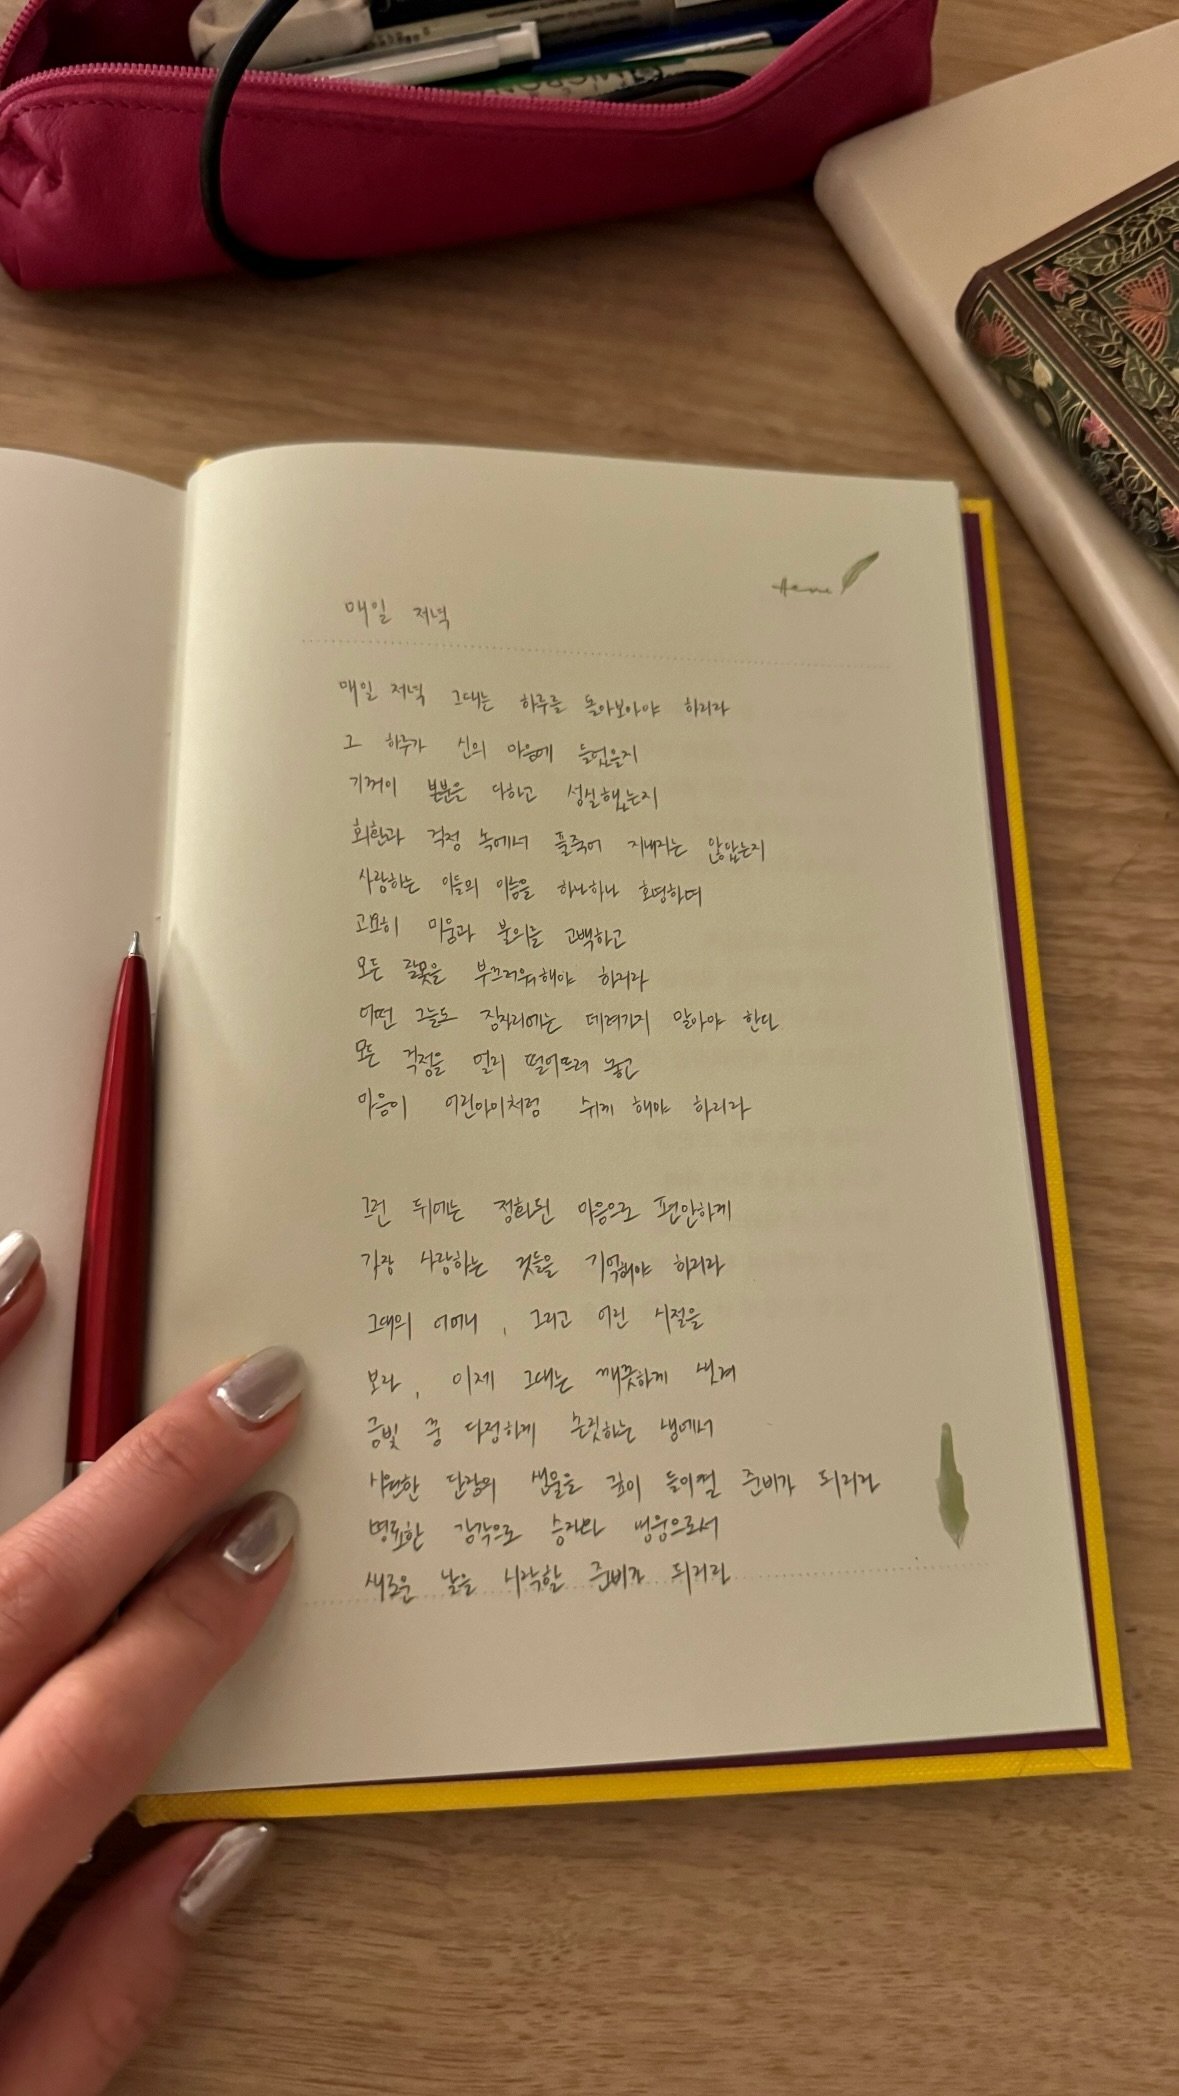 매일 저녁
매일 저녁 그대는 하루를 돌아보아야 하리라
그 하루가 신의 마음에 들었을지
기꺼이 본분을 다하고 성실했는지
회한과 걱정 속에서 풀죽어 지내지는 않았는지
사랑하는 이들의 이름을 하나하나 호명하며
고요히 미움과 불의를 고백하고
모든 잘못을 부끄러워해야 하리라
어떤 그늘도 잠자리에는 데려가지 말아야 한다
모든 걱정을 멀리 떨어뜨려 놓고
마음이 어린아이처럼 쉬게 해야 하리라
그런 뒤에는 정화된 마음으로 편안하게
가장 사랑하는 것들을 기억해야 하리라
그대의 어머니, 그리고 어린 시절을
보라, 이제 그대는 깨끗하게 씻겨
금빛 꿈 다정하게 손짓하는 샘에서
시원한 단잠의 샘물을 깊이 들이켤 준비가 되리라
명료한 감각으로 승자와 영웅으로서
새로운 날을 시작할 준비가 되리라